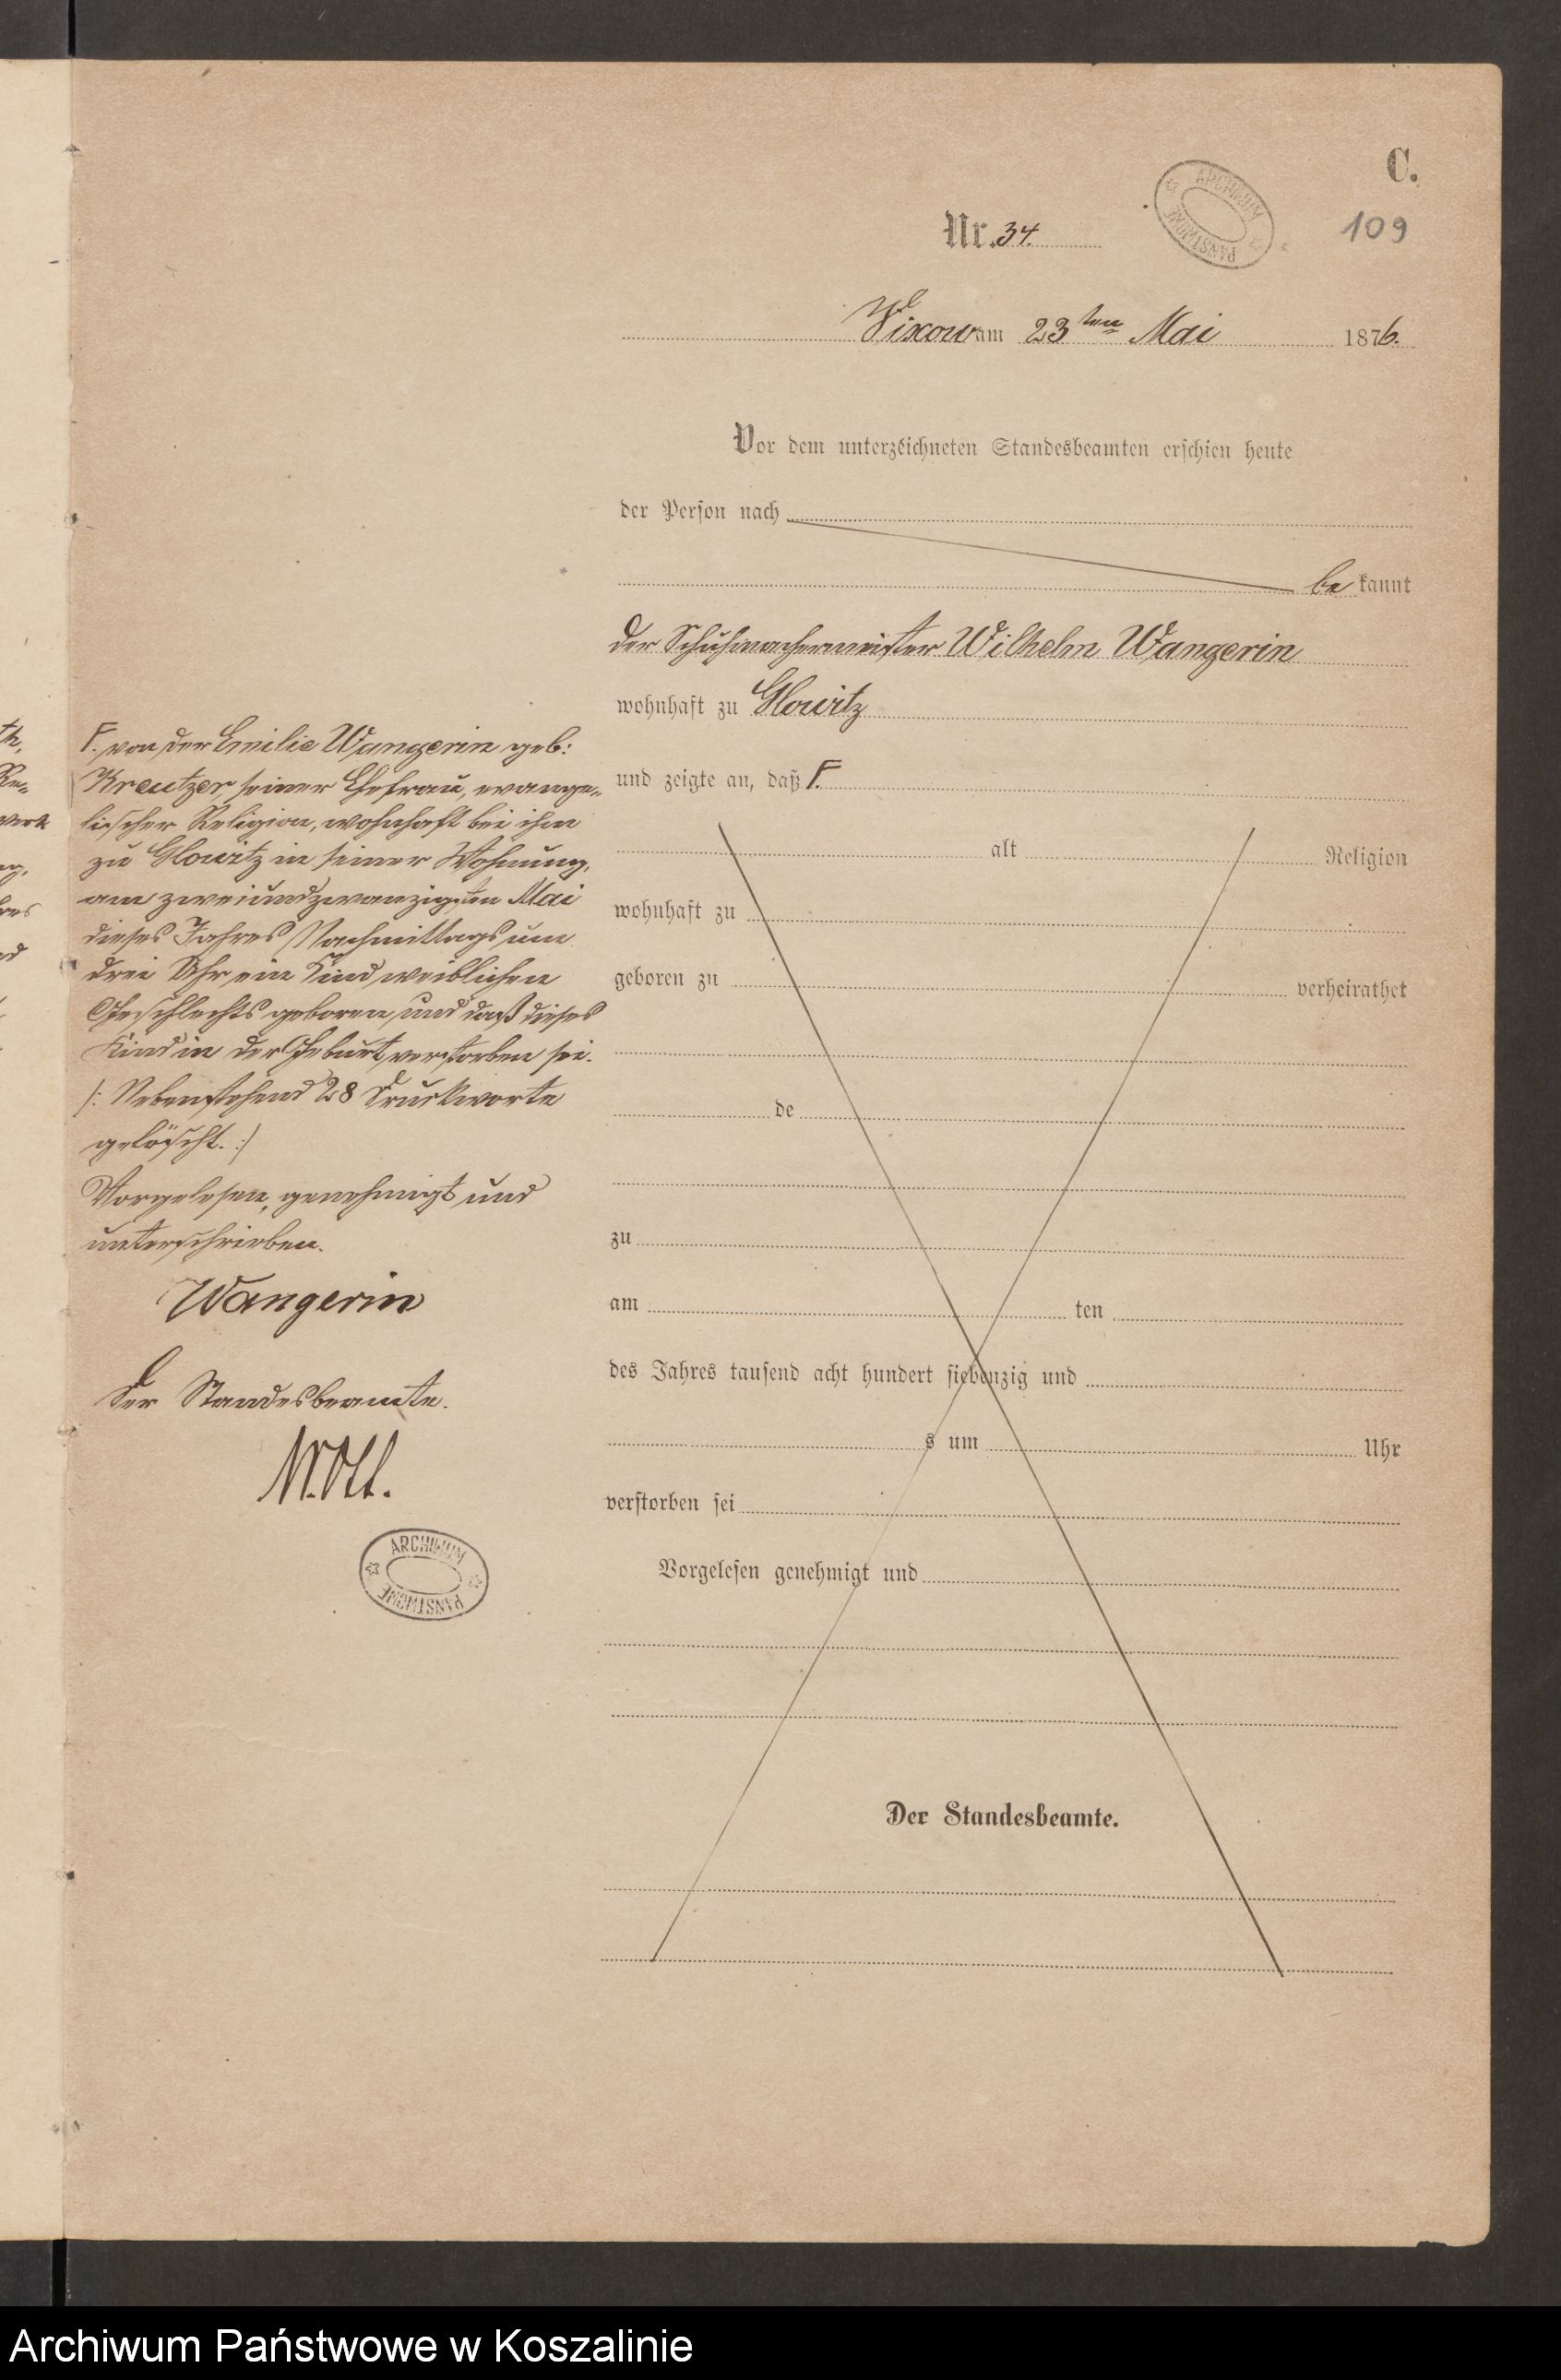 C.
109
ARCHIWUM PAŃSTWOWE
Nr. 34.
Vixow am 23ten Mai 1876.
Vor dem unterzeichneten Standesbeamten erschien heute
der Person nach
be kannt
der Schuhmachermeister Wilhelm Wangerin
wohnhaft zu Glowitz
und zeigte an, daß F.
alt Religion
wohnhaft zu
geboren zu verheirathet
de
zu
am ten
des Jahres tausend acht hundert siebenzig und
s um Uhr
verstorben sei
Vorgelesen genehmigt und
Der Standesbeamte.
F. von der Emilie Wangerin geb:
Kreutzer, seiner Ehefrau, evange-
lischer Religion, wohnhaft bei ihm
zu Glowitz in seiner Wohnung,
am zweiundzwanzigsten Mai
dieses Jahres Nachmittags um
drei Uhr ein Kind weiblichen
Geschlechts geboren, und daß dieses
Kind in der Geburt verstorben sei.
/: Nebenstehend 28 Druckworte
gelöscht. :/
Vorgelesen, genehmigt und
unterschrieben.
Wangerin
Der Standesbeamte.
ARCHIWUM PAŃSTWOWE
Archiwum Państwowe w Koszalinie